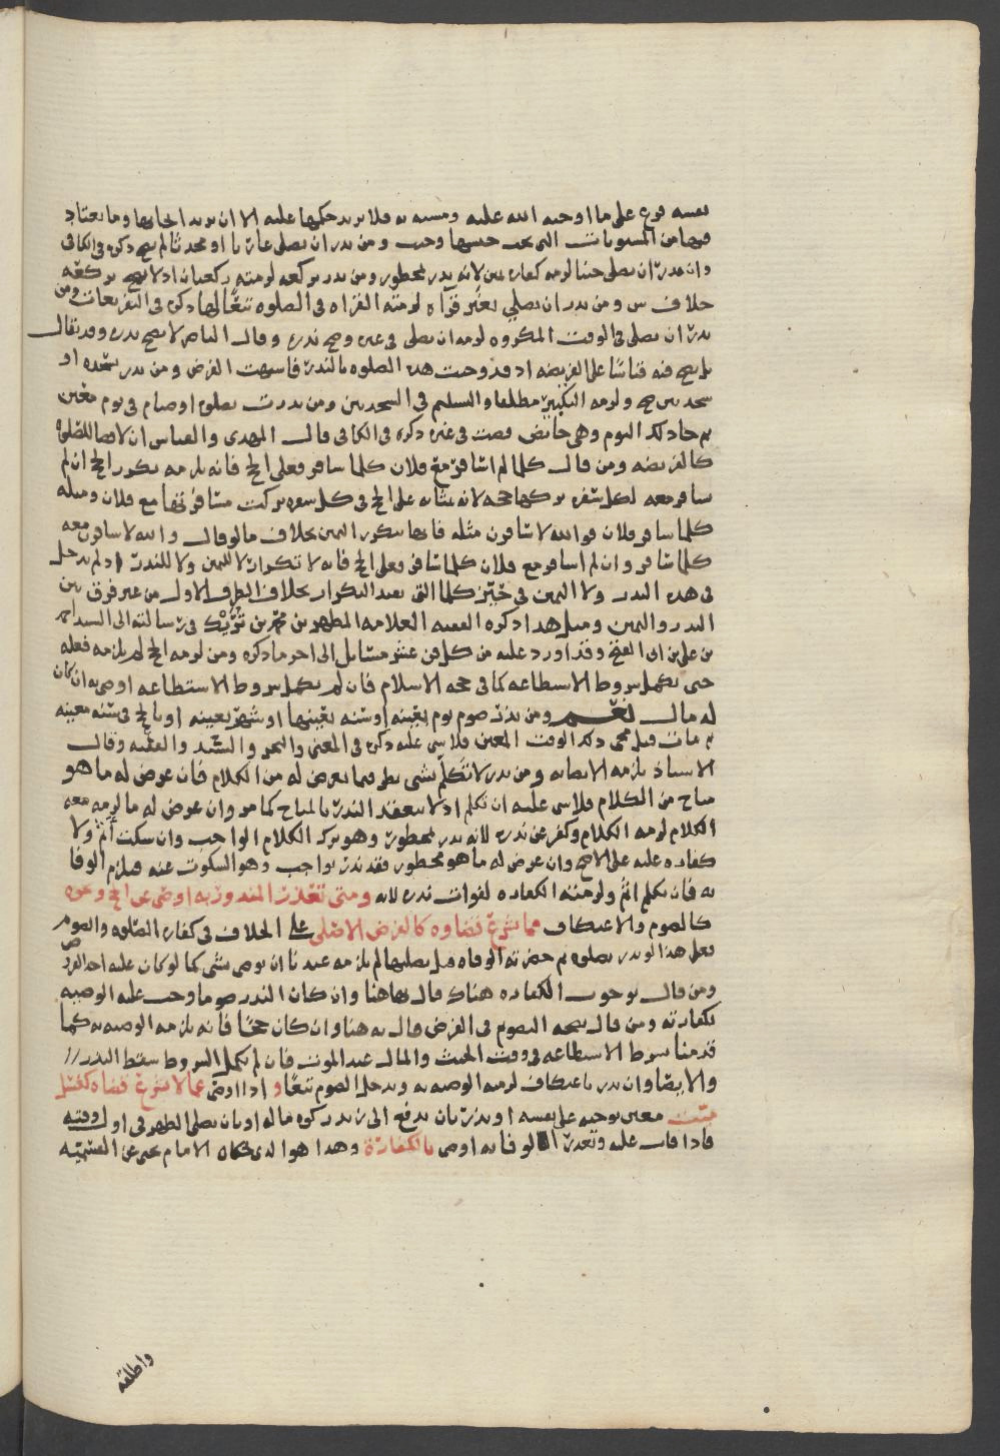 نفسه فرع على ما اوجبه الله عليه ومشبه به فلا يزيد حكمها عليه الا ان يريد الحاقها وما يعتاد
فيها من المسنونات التي يجب جنسها وجب ومن نذر ان يصلي عاريا او محدثا لم يصح ذكره في الكافي
وان نذر ان يصلي جنبا لزمه كفارة يمين لانه نذر بمحظور ومن نذر بركعه لزمته ركعتان اذ لا يصح بركعه
خلاف ش ومن نذر ان يصلي بغير قراه لزمته القراه في الصلوه تبعًا لها ذكره في التفريعات ومن
نذر ان يصلي في الوقت المكروه لزمه ان يصلي في غيره وصح نذره وقال الناصر لا يصح نذره وقد يقال
بل يصح فيه قياسًا على الفريضه اذ قد وجبت هذه الصلوه بالنذر فاشبهت الفرض ومن نذر بسجده او
سجدتين صح ولزمه التكبير مطلقا والتسليم في السجدتين ومن نذرت بصلوة او صيام في يوم معين
ثم جا ذلك اليوم وهي حائض قضت في غيره ذكره في الكافي قال المهدي والقياس ان لا قضا للصلوة
كالفريضه ومن قال كلما لم اسافر مع فلان كلما سافر فعلي الحج فانه يلزمه بكور الحج ان لم
يسافر معه لكل سفره تركها حجه لانه بمثابه علي الحج في كل سفره تركت مسافرتها مع فلان ومثله
كلما سافر فلان فوالله لاسافرن مثله فانها تتكرر اليمين بخلاف ما لو قال والله لاسافرن معه
كلما سافر وان لم اسافر مع فلان كلما سافر فعلي الحج فانه لا تكرار لا لليمين ولا للنذر اذ لم يدخل
في هذه النذر ولا اليمين في حيز كلما التي تفيد التكرار بخلاف الطرف الاول من غير فرق بين
النذر واليمين ومثل هذا ذكره الفقيه العلامه المطهر بن محمد بن تُرَيْك في رسالته الى السيد احمد
بن علي بن ابي الفتح وقد اورد عليه من كل فن عشر مسائل الى اخر ما ذكره ومن لزمه الحج لم يلزمه فعله
حتى تكمل شروط الاستطاعه كما في حجه الاسلام فان لم تكمل شروط الاستطاعه اوصى به ان كان
له مال نعم ومن نذر صوم يوم بعينه او سنه بعينها او شهر بعينه او بالحج في سنه معينه
ثم مات قبل مجي ذلك الوقت المعين فلا شي عليه ذكره في المغني والبحر والسيد والفقيه وقال
الاستاذ يلزمه الايصا به ومن نذر لا تكلم بشي نظر فيما يعرض له من الكلام فان عرض له ما هو
مباح من الكلام فلا شي عليه ان تكلم اذ لا ينعقد النذر بالمباح كما مر وان عرض له ما لزمه معه
الكلام لزمه الكلام وكفر عن نذره لانه نذر بمحظور وهو ترك الكلام الواجب وان سكت أثم ولا
كفاره عليه على الاصح وان عرض له ما هو محظور فقد نذر بواجب وهو السكوت عنه فيلزم الوفا
به فان تكلم اثم ولزمته الكفاره لفوات نذره لانه ومتى تعذر المنذور به اوصى عن الحج ونحوه
كالصوم والاعتكاف مما شرع قضاوه كالفرض الاصلي على الخلاف في كفارة الصلوه والصوم
فعلى هذا لو نذر بصلوه ثم حضرته الوفاه قبل يصليها لم يلزمه عندنا ان يوصي بشي كما لو كان عليه احد الفروض
ومن قال بوجوب الكفاره هناك قال بها هنا وان كان النذر صوما وجب عليه الوصيه
بكفارته ومن قال بصحه الصوم في الفرض قال به هنا وان كان حجًا فانه يلزمه الوصيه به كما
قدمنا بشرط الاستطاعه في وقت الحنث والمال عند الموت فان لم تكمل الشروط سقط النذر //
والايصا وان نذر باعتكاف لزمه الوصيه به ويدخل الصوم تبعًا و اذا اوصى عما لا شرع قضاه كغسل
ميت معين توجبه على نفسه او نذر بان يدفع الى زيد زكوه ماله او بان يصلي الظهر في اول وقته
فاذا فات عليه وتعذر الوفا به اوصى بالكفارة وهذا هو الذي حكاه الامام يحيى عن القسميه
واطلقه